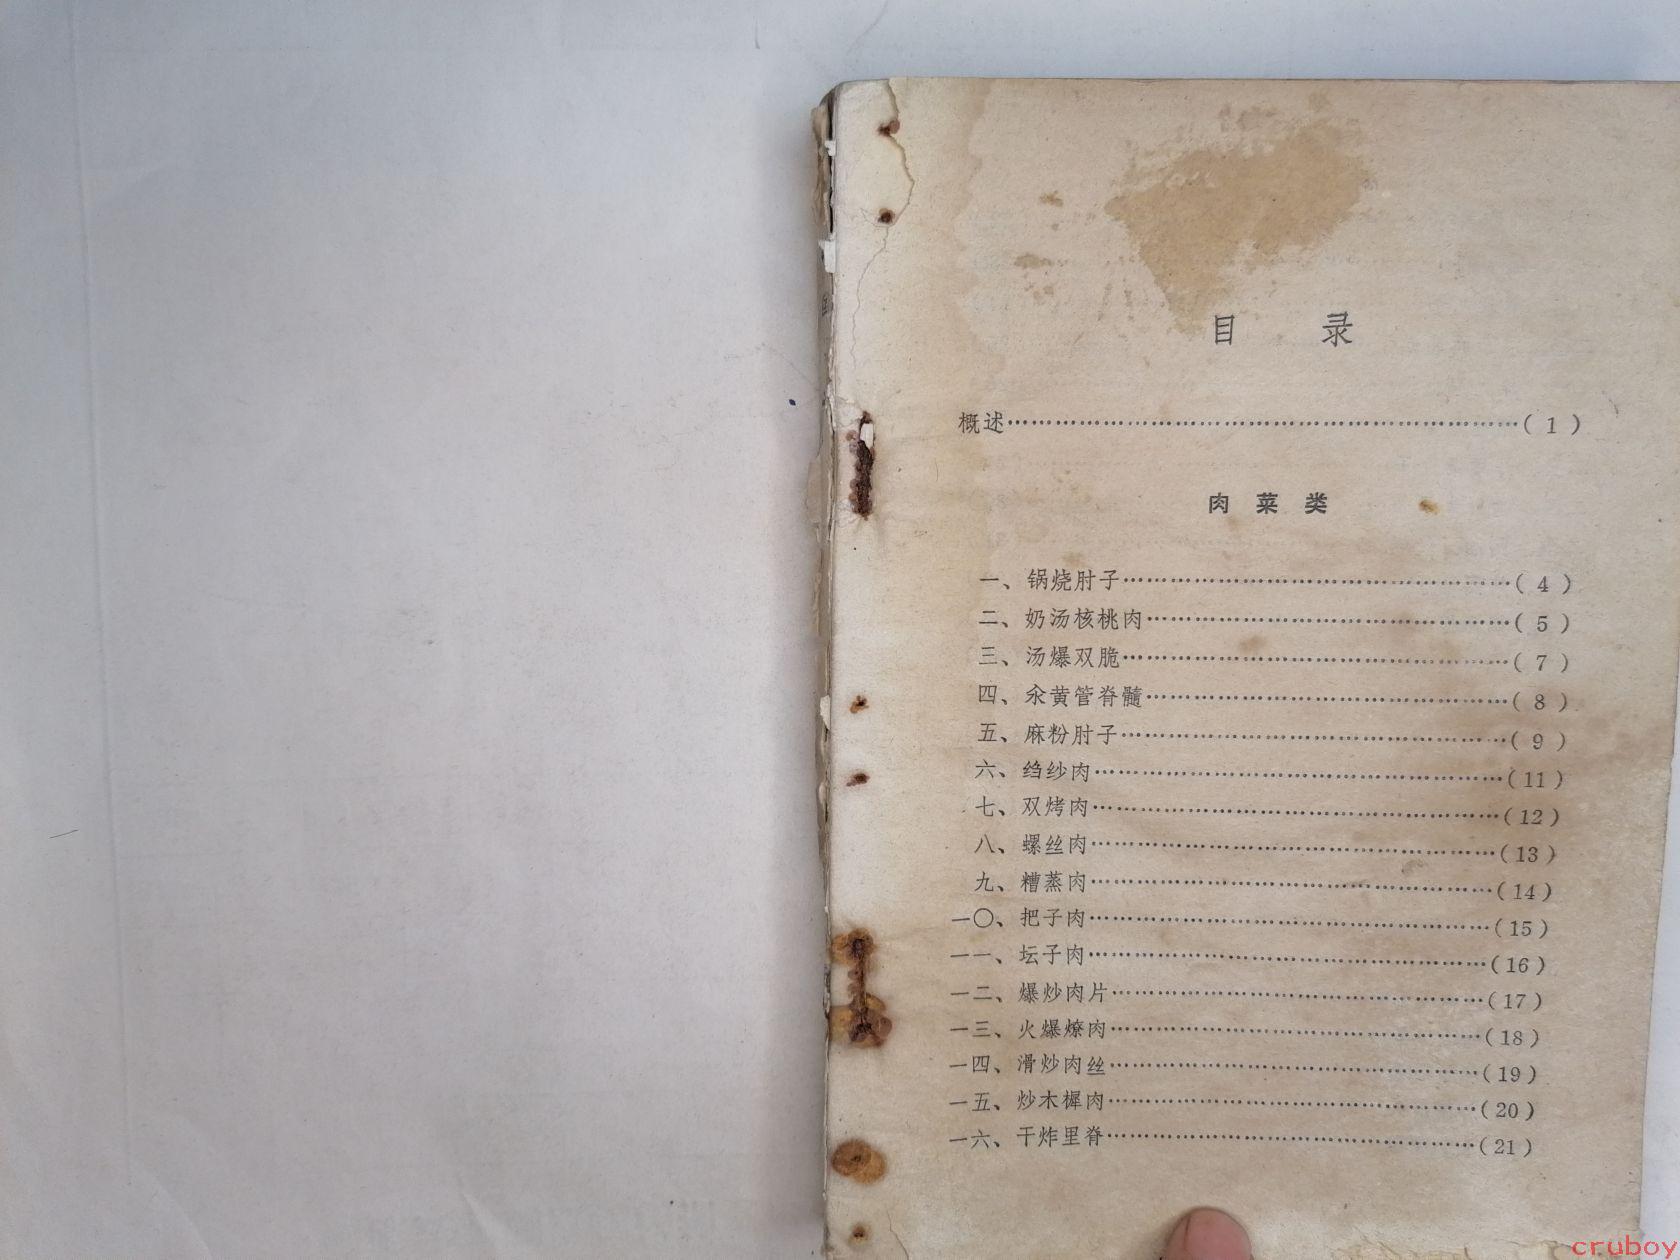 目 录
概述……………………………………………………( 1 )
肉 菜 类
一、锅烧肘子…………………………………………( 4 )
二、奶汤核桃肉………………………………………( 5 )
三、汤爆双脆…………………………………………( 7 )
四、汆黄管脊髓………………………………………( 8 )
五、麻粉肘子…………………………………………( 9 )
六、绉纱肉……………………………………………(11)
七、双烤肉……………………………………………(12)
八、螺丝肉……………………………………………(13)
九、糟蒸肉……………………………………………(14)
一〇、把子肉…………………………………………(15)
一一、坛子肉…………………………………………(16)
一二、爆炒肉片………………………………………(17)
一三、火爆燎肉………………………………………(18)
一四、滑炒肉丝………………………………………(19)
一五、炒木樨肉………………………………………(20)
一六、干炸里脊………………………………………(21)
cruboy